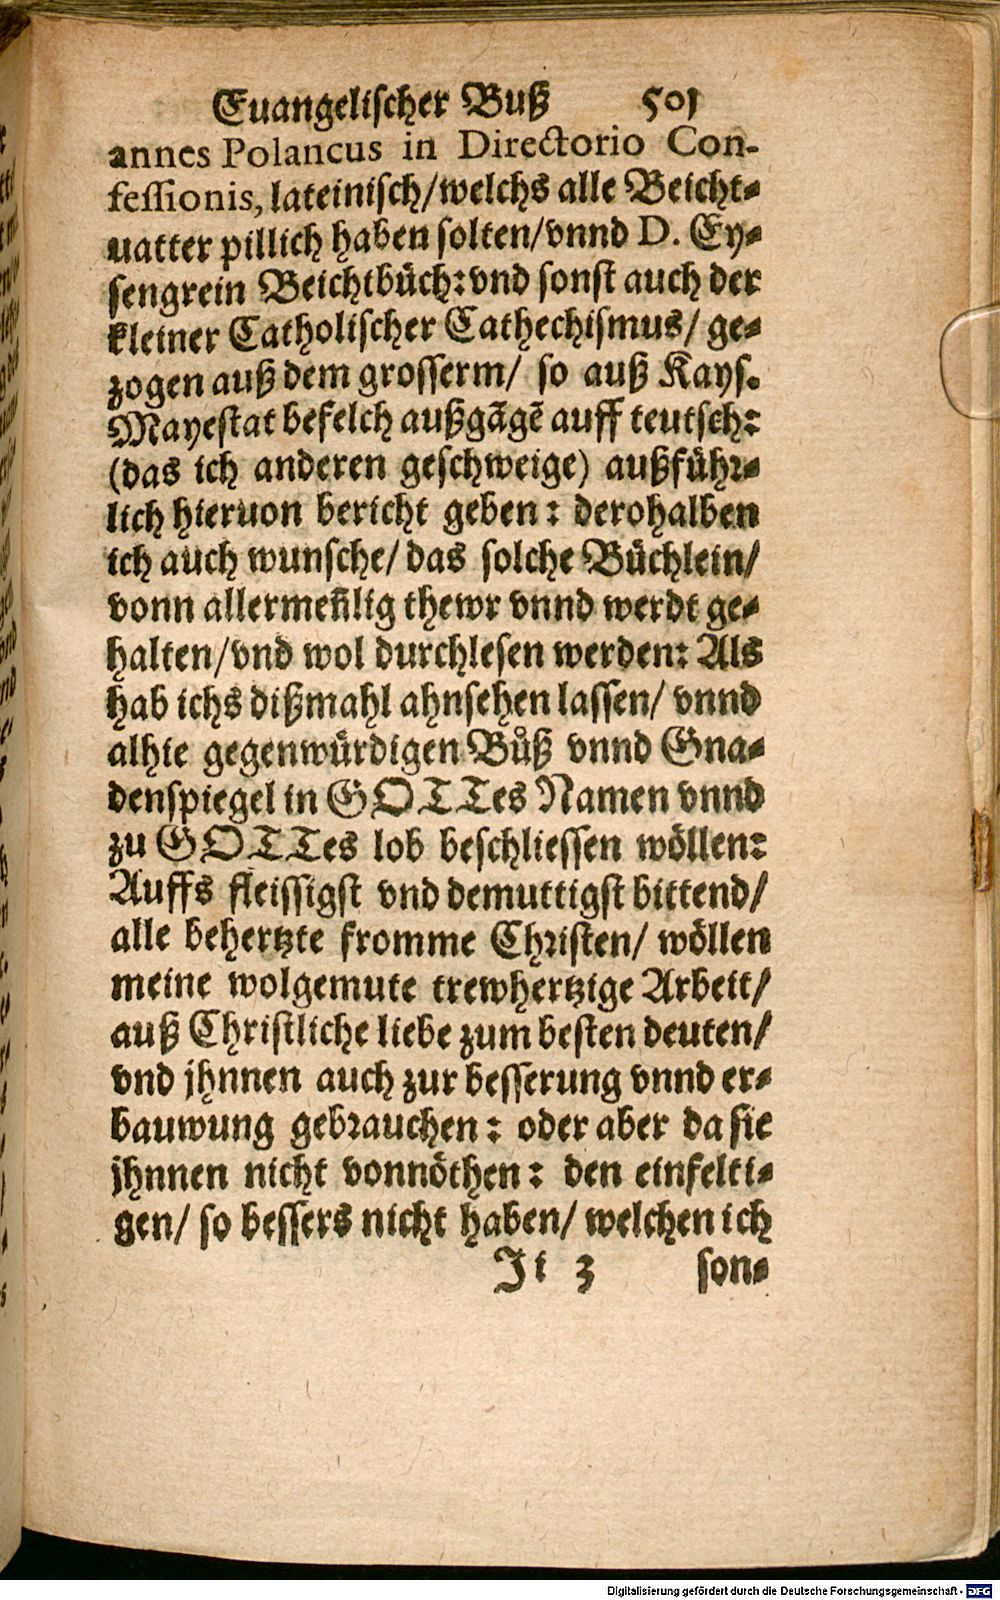 Euangelischer Buß 501
annes Polancus in Directorio Con-
fessionis, lateinisch/welchs alle Beicht-
uatter pillich haben solten/vnnd D. Ey-
sengrein Beichtbüch: vnd sonst auch der
kleiner Catholischer Cathechismus/ ge-
zogen auß dem grosserm/ so auß Kays.
Mayestat befelch außgãgẽ auff teutsch:
(das ich anderen geschweige) außführ-
lich hieruon bericht geben: derohalben
ich auch wunsche/ das solche Büchlein/
vonn allermeñlig thewr vnnd werdt ge-
halten/vnd wol durchlesen werden: Als
hab ichs dißmahl ahnsehen lassen/ vnnd
alhie gegenwürdigen Bůß vnnd Gna-
denspiegel in GOTTes Namen vnnd
zu GOTTes lob beschliessen wöllen:
Auffs fleissigst vnd demuttigst bittend/
alle behertzte fromme Christen/ wöllen
meine wolgemute trewhertzige Arbeit/
auß Christliche liebe zum besten deuten/
vnd jhnnen auch zur besserung vnnd er-
bauwung gebrauchen: oder aber da sie
jhnnen nicht vonnöthen: den einfelti-
gen/ so bessers nicht haben/ welchen ich
Ii 3 son-
Digitalisierung gefördert durch die Deutsche Forschungsgemeinschaft - DFG